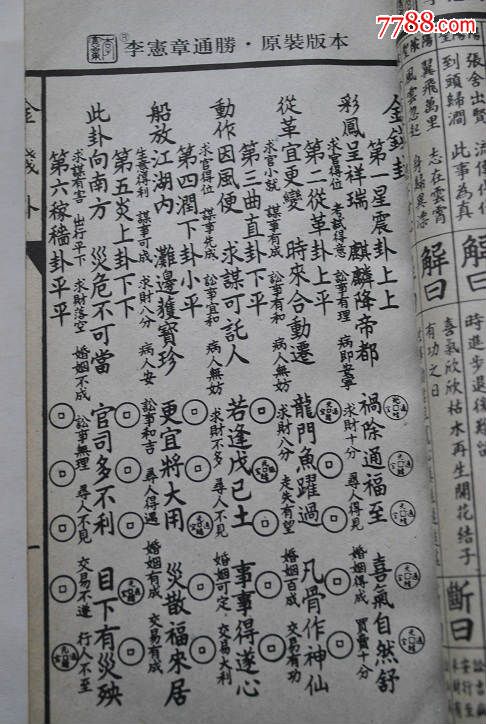 7788.com
李憲章通勝・原裝版本
金錢卦
金錢卦
第一星震卦上上
彩鳳呈祥瑞 麒麟降帝都 禍除過福至 喜氣自然舒
求官得位 考試得意 訟事有理 病即安寧 求財十分 尋人得見 婚姻得成 買賣十分
第二從革卦上平
從革宜更變 時來合動遷 龍門魚躍過 凡骨作神仙
求官小就 謀事有成 訟事有和 病人無妨 求財八分 走失有望 婚姻百成 交易有功
第三曲直卦下平
動作因風便 求謀可託人 若逢戊己土 事事得遂心
求官得位 謀事先成 訟事宜和 病人無妨 求財不多 尋人不見 婚姻可定 交易大利
第四潤下卦小平
船放江湖內 灘邊獲寶珍 更宜將大用 災散福來居
生意得利 謀事可成 求財八分 病人安 訟事和吉 尋人得遇 婚姻有成 交易有成
第五炎上卦下下
此卦向南方 災危不可當 官司多不利 目下有災殃
求謀有害 出行平下 求財落空 婚姻不成 訟事無理 尋人不見 交易不遂 行人不至
第六稼穡卦平平
張舍出賢
到頭歸澗
此事為真
翼飛萬里
志在雲霄
風雲忽起
解曰
解曰
時進步退後難留
喜氣欣欣枯水再生開花結子
有功之日
斷曰